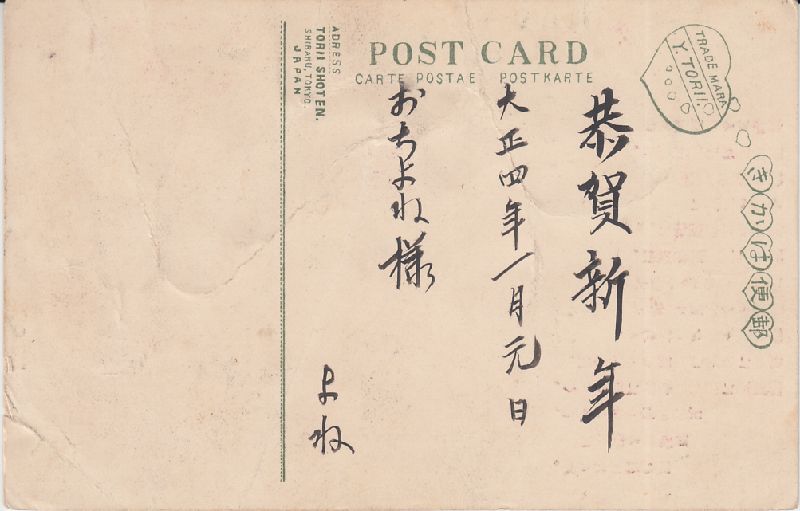 POST CARD
CARTE POSTAE POSTKARTE
ADRESS
TORII SHOTEN.
SHIBAKU, TOKYO.
JAPAN
TRADE MARK
Y. TORII
きかは便郵
恭賀新年
大正四年一月元日
おちよね様
よね